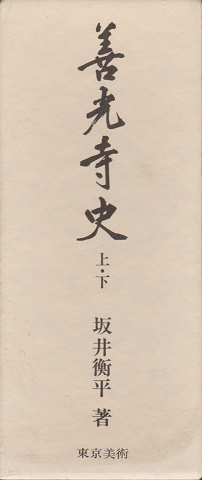 善光寺史
上・下
坂井衡平 著
東京美術